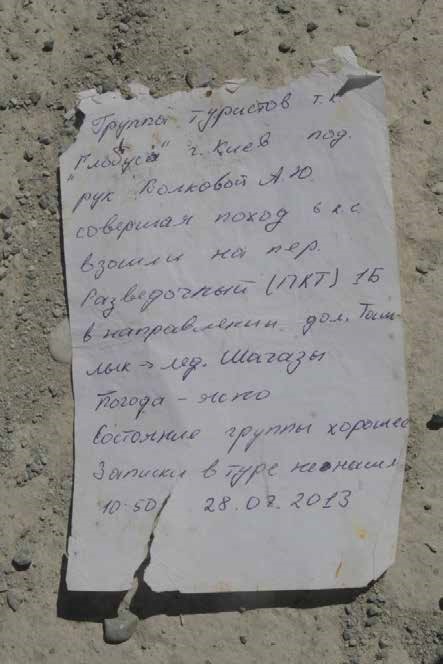 Группы туристов т.к
"Глобуса" г. Киев под.
рук Волковой А.Ю.
совершая поход 6 к.с.
взошли на пер.
Разведочный (ПКТ) 1Б
в направлении дол.
лык → лед. Шагазы
Погода - ясно
Состояние группы хорошее
Записки в туре не нашли
10:50 28.07.2013